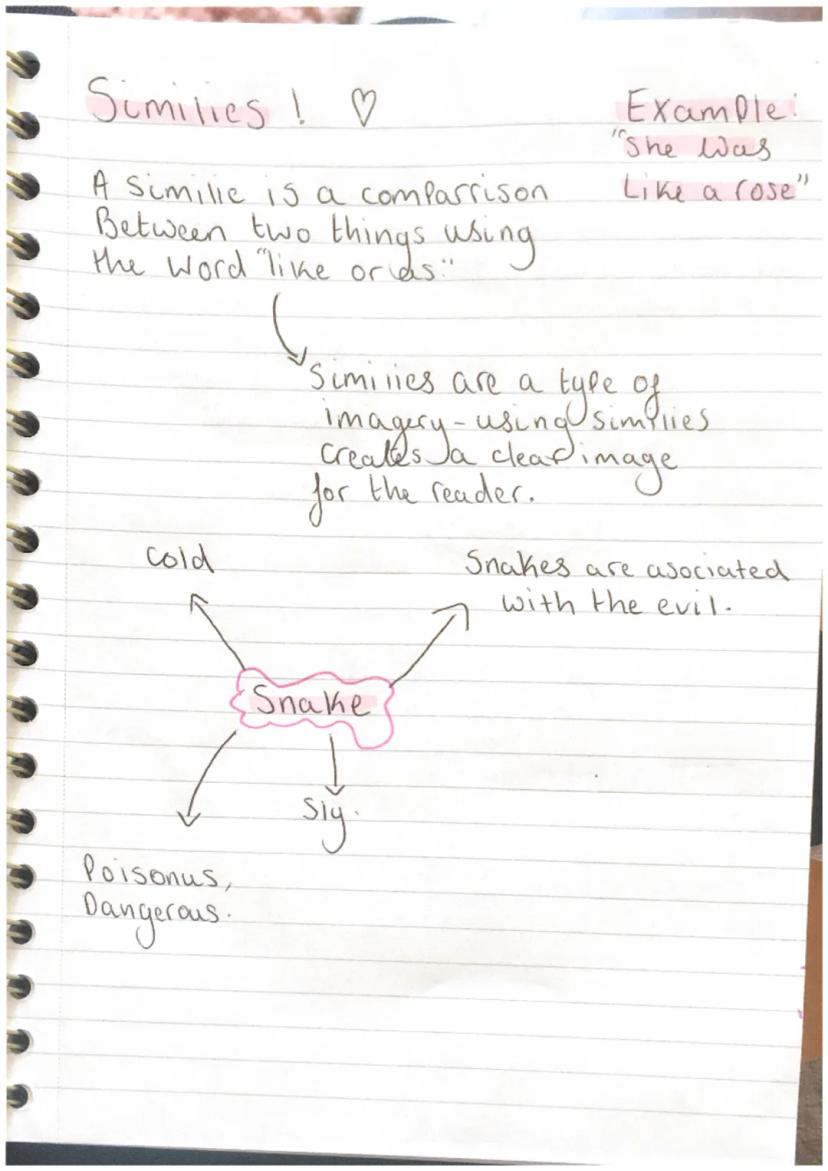 Similies ! ♡
Example:
"She was
Like a rose"
A Similie is a comparrison
Between two things using
the word "like or as."
Similies are a type of
imagery - using similies
creates a clear image
for the reader.
Cold
Snakes are asociated
with the evil.
Snake
Sly.
Poisonus,
Dangerous.